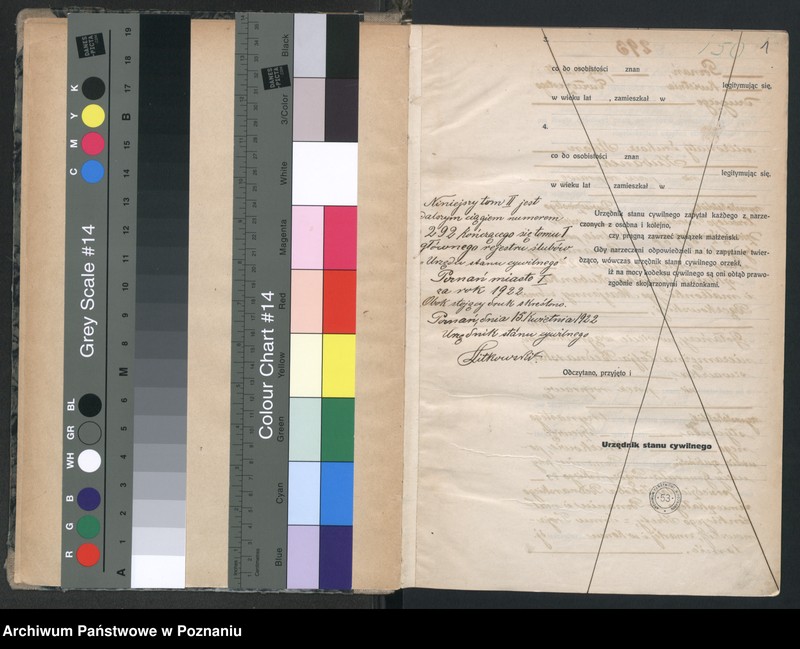 Grey Scale #14
R G B WH GR BL C M Y K
A 1 2 3 4 5 6 M 8 9 10 11 12 13 14 15 B 17 18 19
DANES
PICTA
Colour Chart #14
Blue Cyan Green Yellow Red Magenta White 3/Color Black
Centimetres
1
3.
co do osobistości znan
legitymując się,
w wieku lat , zamieszkał w
4.
co do osobistości znan
legitymując się,
w wieku lat , zamieszkał w
Niniejszy tom II jest
dalszym ciągiem numerem
292 kończącego się tomu I
głównego rejestru ślubów
Urzędu stanu cywilnego
Poznań miasto I
za rok 1922
Obok stojący druk skreślono.
Poznań, dnia 15. kwietnia 1922
Urzędnik stanu cywilnego
Urzędnik stanu cywilnego zapytał każdego z narze-
czonych z osobna i kolejno,
czy pragną zawrzeć związek małżeński.
Gdy narzeczeni odpowiedzieli na to zapytanie twier-
dząco, wówczas urzędnik stanu cywilnego orzekł,
iż na mocy kodeksu cywilnego są oni obtąd prawo-
zgodnie skojarzonymi małżonkami.
Odczytano, przyjęto i
Urzędnik stanu cywilnego
53
Archiwum Państwowe w Poznaniu